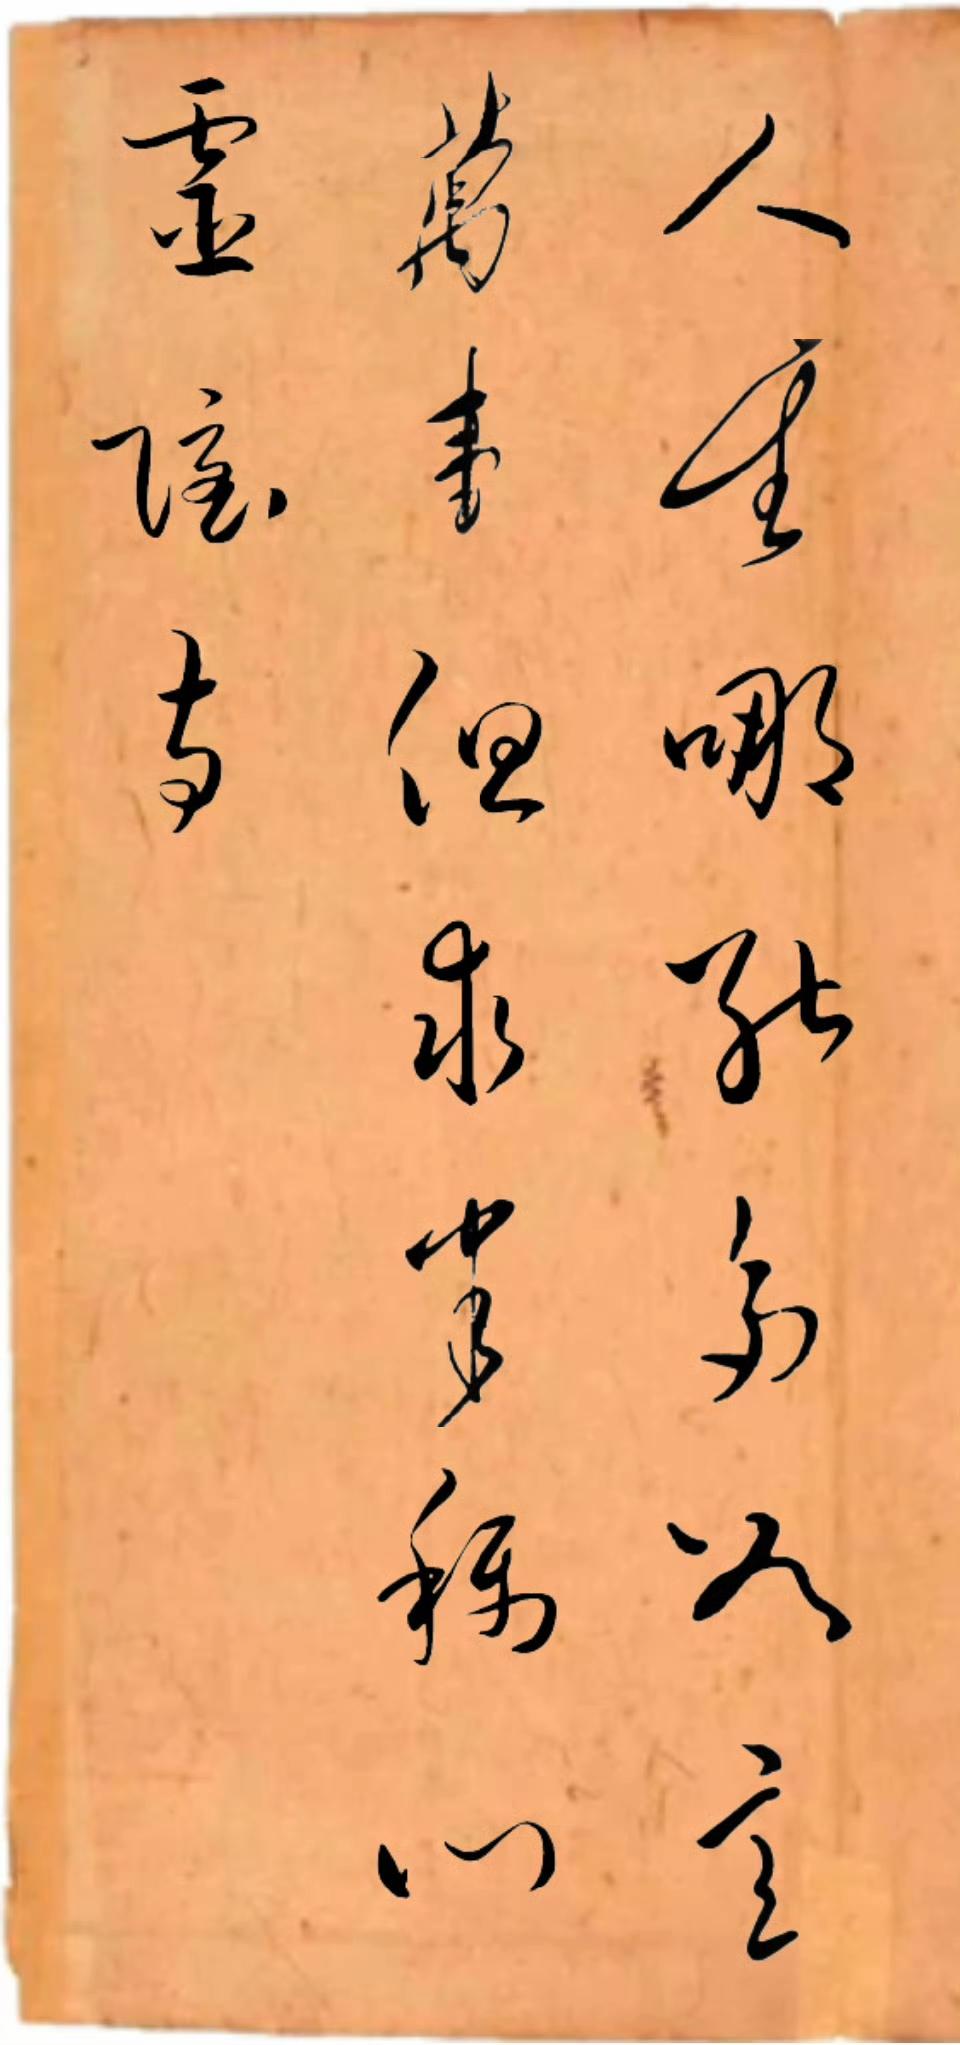 人生哪能多如意
萬事但求半稱心
靈隱寺